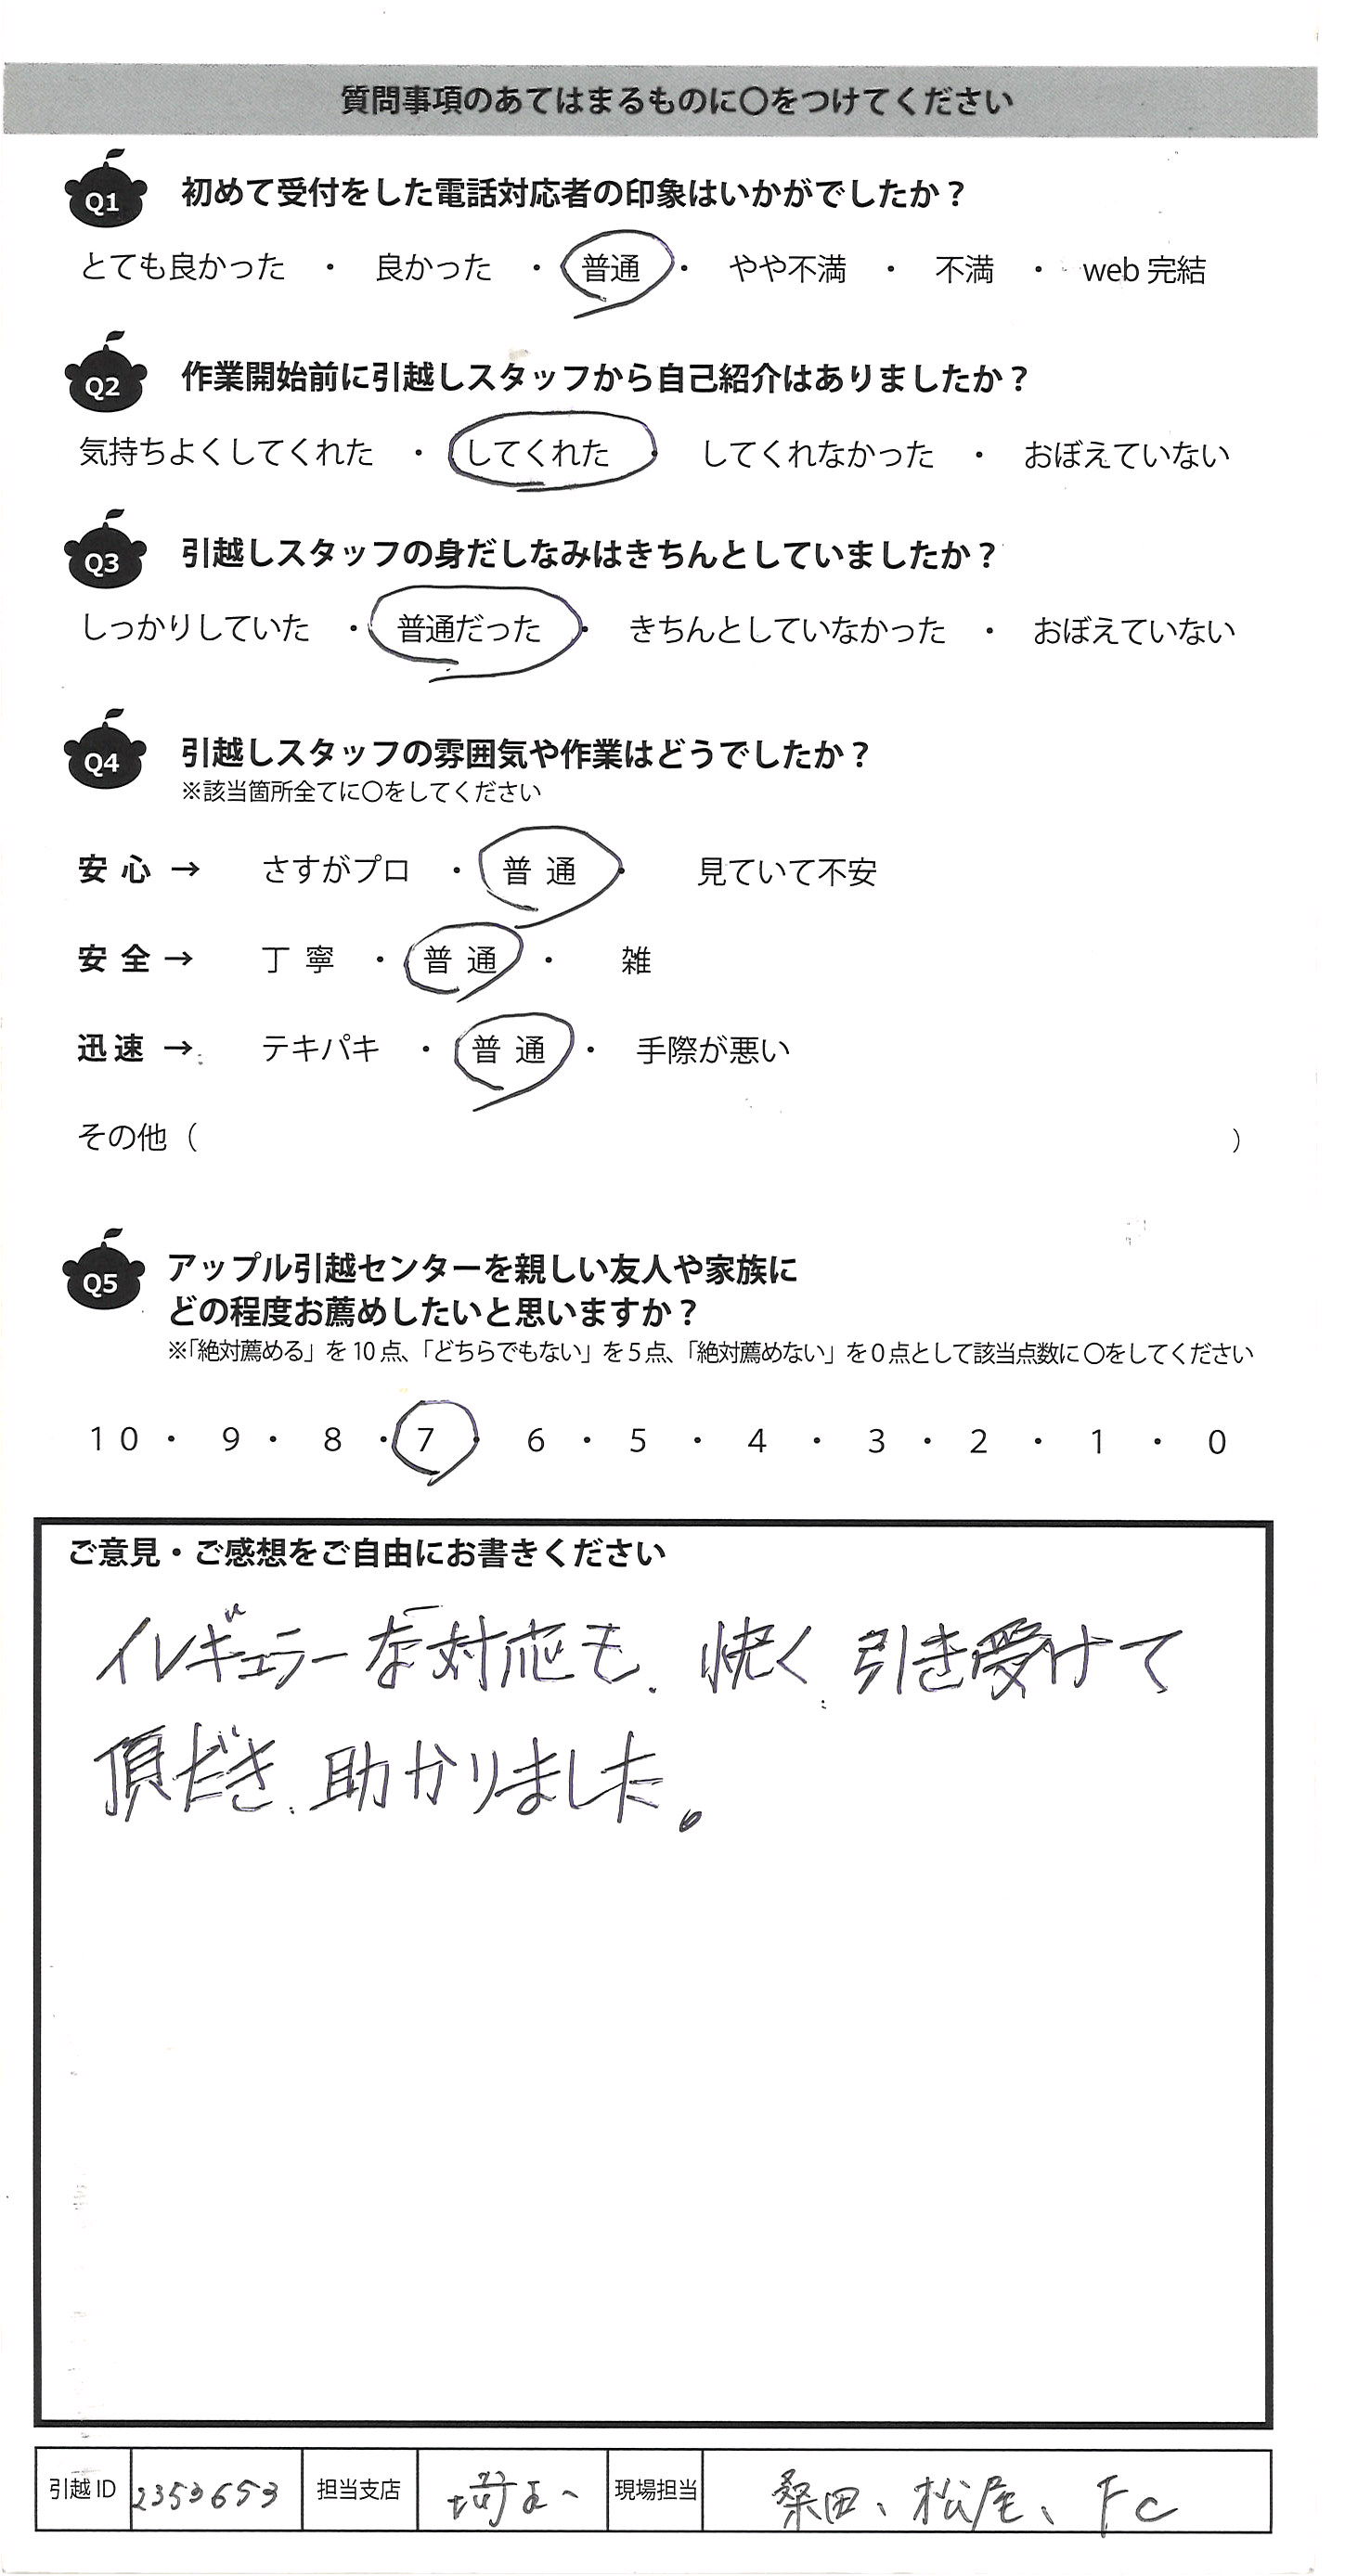 質問事項のあてはまるものに〇をつけてください
Q1 初めて受付をした電話対応者の印象はいかがでしたか？
とても良かった ・ 良かった ・ 普通 ・ やや不満 ・ 不満 ・ web 完結
Q2 作業開始前に引越しスタッフから自己紹介はありましたか？
気持ちよくしてくれた ・ してくれた ・ してくれなかった ・ おぼえていない
Q3 引越しスタッフの身だしなみはきちんとしていましたか？
しっかりしていた ・ 普通だった ・ きちんとしていなかった ・ おぼえていない
Q4 引越しスタッフの雰囲気や作業はどうでしたか？
※該当箇所全てに〇をしてください
安心 → さすがプロ ・ 普通 ・ 見ていて不安
安全 → 丁寧 ・ 普通 ・ 雑
迅速 → テキパキ ・ 普通 ・ 手際が悪い
その他（ ）
Q5 アップル引越センターを親しい友人や家族に
どの程度お薦めしたいと思いますか？
※「絶対薦める」を 10 点、「どちらでもない」を 5 点、「絶対薦めない」を 0 点として該当点数に 〇をしてください
10 ・ 9 ・ 8 ・ 7 ・ 6 ・ 5 ・ 4 ・ 3 ・ 2 ・ 1 ・ 0
ご意見・ご感想をご自由にお書きください
イレギュラーな対応も、快く引き受けて
頂だき、助かりました。
引越 ID 2353653 担当支店 埼玉 現場担当 桑田、松尾、FC